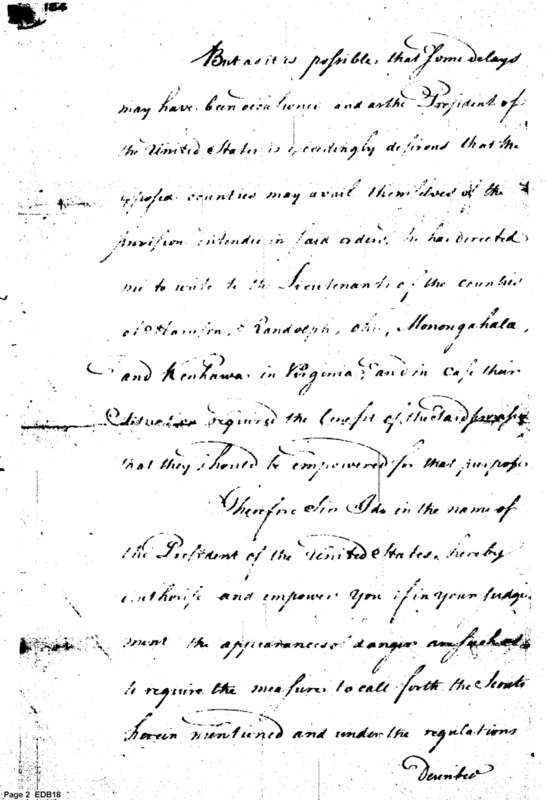 184
But as it is possible, that some delays
may have been occasioned and as the President of
the United States is exceedingly desirous that the
exposed counties may avail themselves of the
provision intended in said orders, he has directed
me to write to the Lieutenants of the counties
of Harrison, Randolph, Ohio, Monongahala,
and Kenhawa in Virginia, and in case their
situation required the benefit of the said
that they should be empowered for that purpose
Therefore Sir I do in the name of
the President of the United States, hereby
authorise and empower You if in your judge
ment the appearances of danger are such as
to require the measure, to call forth the Scouts
herein mentioned and under the regulations
Described
Page 2 EDB18